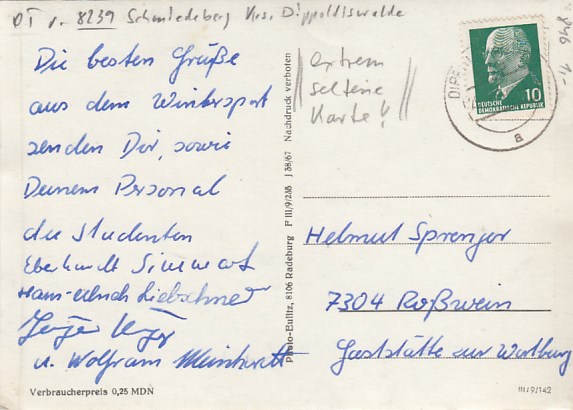 OT v. 8239 Schmiedeberg Krs. Dippoldiswalde
846 1,-
Die besten Grüße
aus dem Wintersport
senden Dir, sowie
Deinem Personal
die Studenten
Eberhardt
Hans-Ulrich Liebschner
u. Wolfram
Verbraucherpreis 0,25 MDN
Photo-Eulitz, 8106 Radeburg P III/9/268 J 38/67 Nachdruck verboten
extrem
seltene
Karte!
DIPP
a
10
DEUTSCHE
DEMOKRATISCHE REPUBLIK
Helmut Sprenger
7304 Roßwein
Gaststätte zur Wartburg
III/9/142